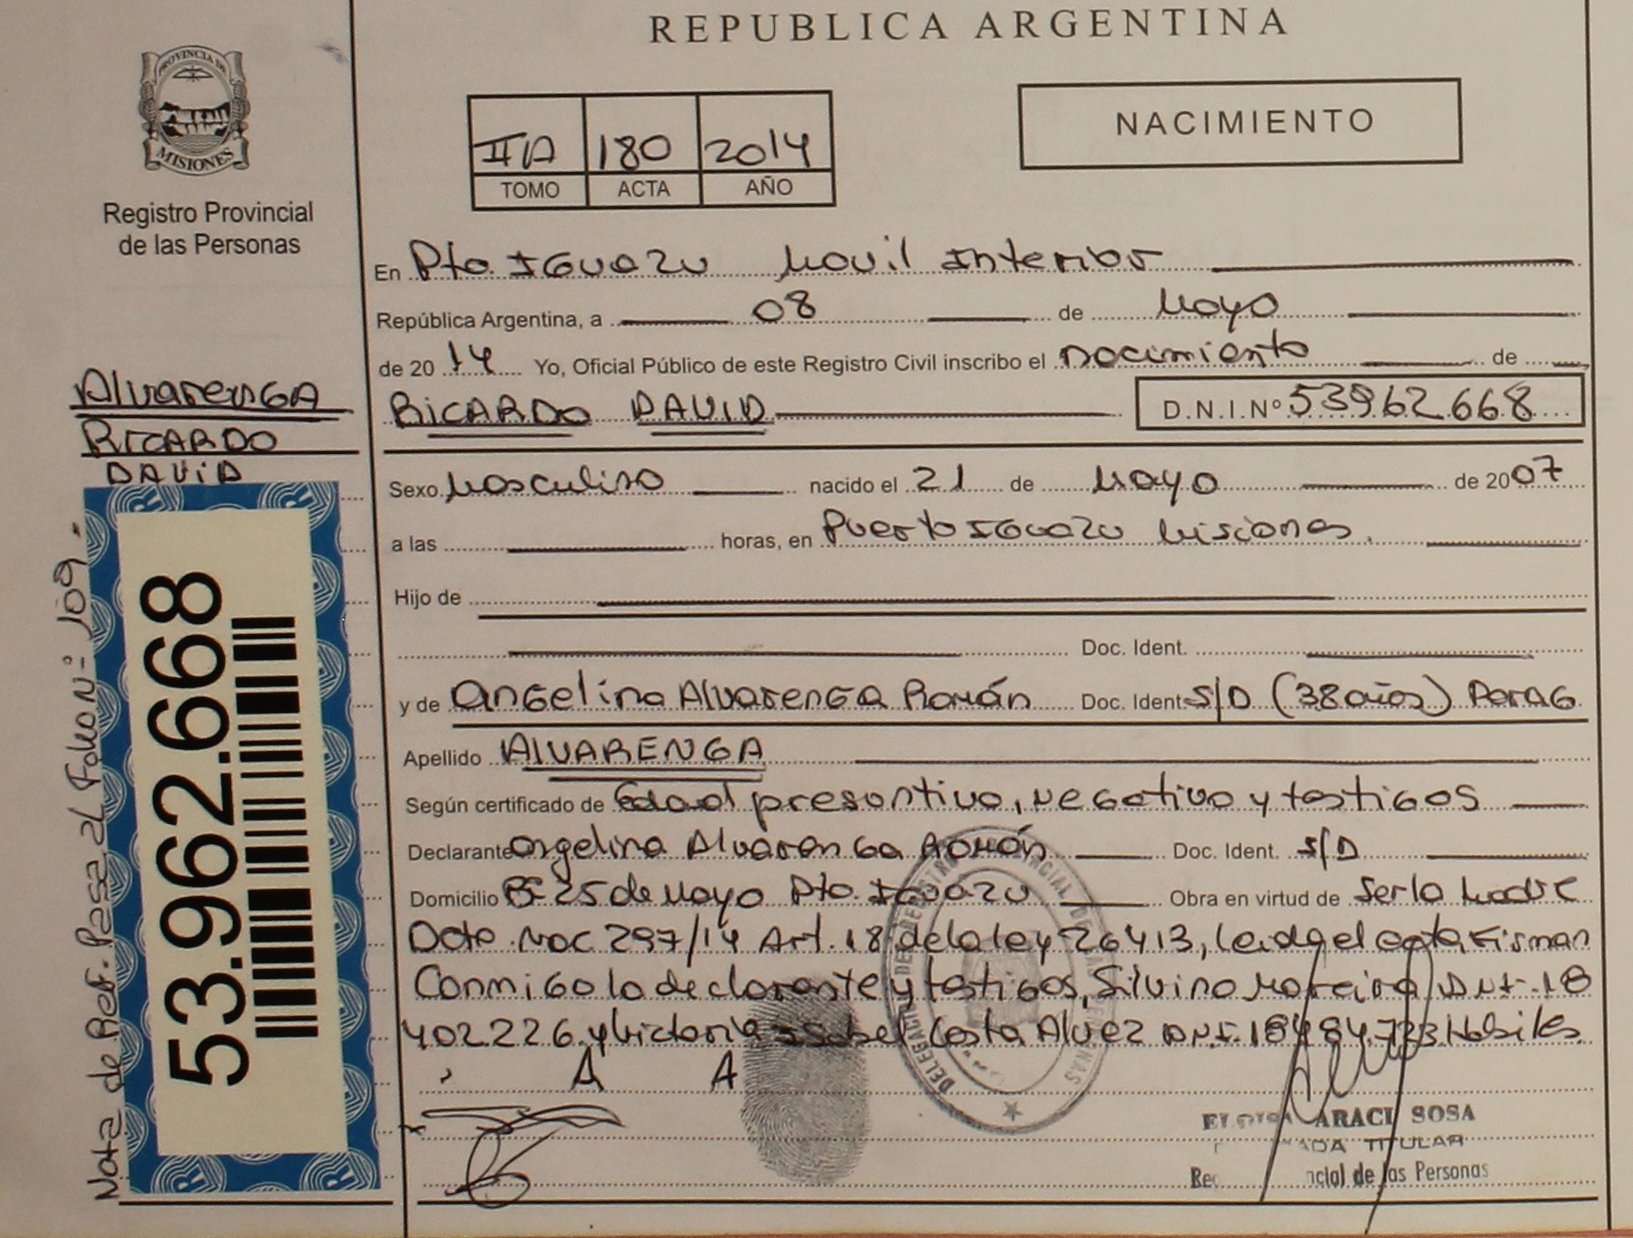 REPUBLICA ARGENTINA
PROVINCIA DE
MISIONES
Registro Provincial
de las Personas
IIA 180 2014
TOMO ACTA AÑO
NACIMIENTO
En Pto. Iguazu Movil Interior
República Argentina, a 08 de Mayo
de 2014 Yo, Oficial Público de este Registro Civil inscribo el nacimiento de
RICARDO DAVID D.N.I.Nº 53962668
Alvarenga
RICARDO
DAVID
Sexo Masculino nacido el 21 de Mayo de 2007
a las horas, en Puerto Iguazu Misiones.
Hijo de
Doc. Ident.
y de Angelina Alvarenga Román Doc. Ident S/D (38 años) Parag
Apellido ALVARENGA
Según certificado de Edad presuntiva, negativo y testigos
Declarante Angelina Alvarenga Román Doc. Ident. S/D
Domicilio Bº 25 de Mayo Pto. Iguazu Obra en virtud de Ser la Madre
Dcto. Nac 297/14 Art. 18 de la ley 26413, Leida el acta, Firman
Conmigo la declarante y testigos, Silvino Moreira D.N.I. 18
402.226 y Victoria Isabel Costa Alvez D.N.I. 18484.723 Habiles.
A A
ARACI SOSA
TITULAR
de las Personas
53.962.668
Nota de Ref. Pasa al Folio Nº: 109.-